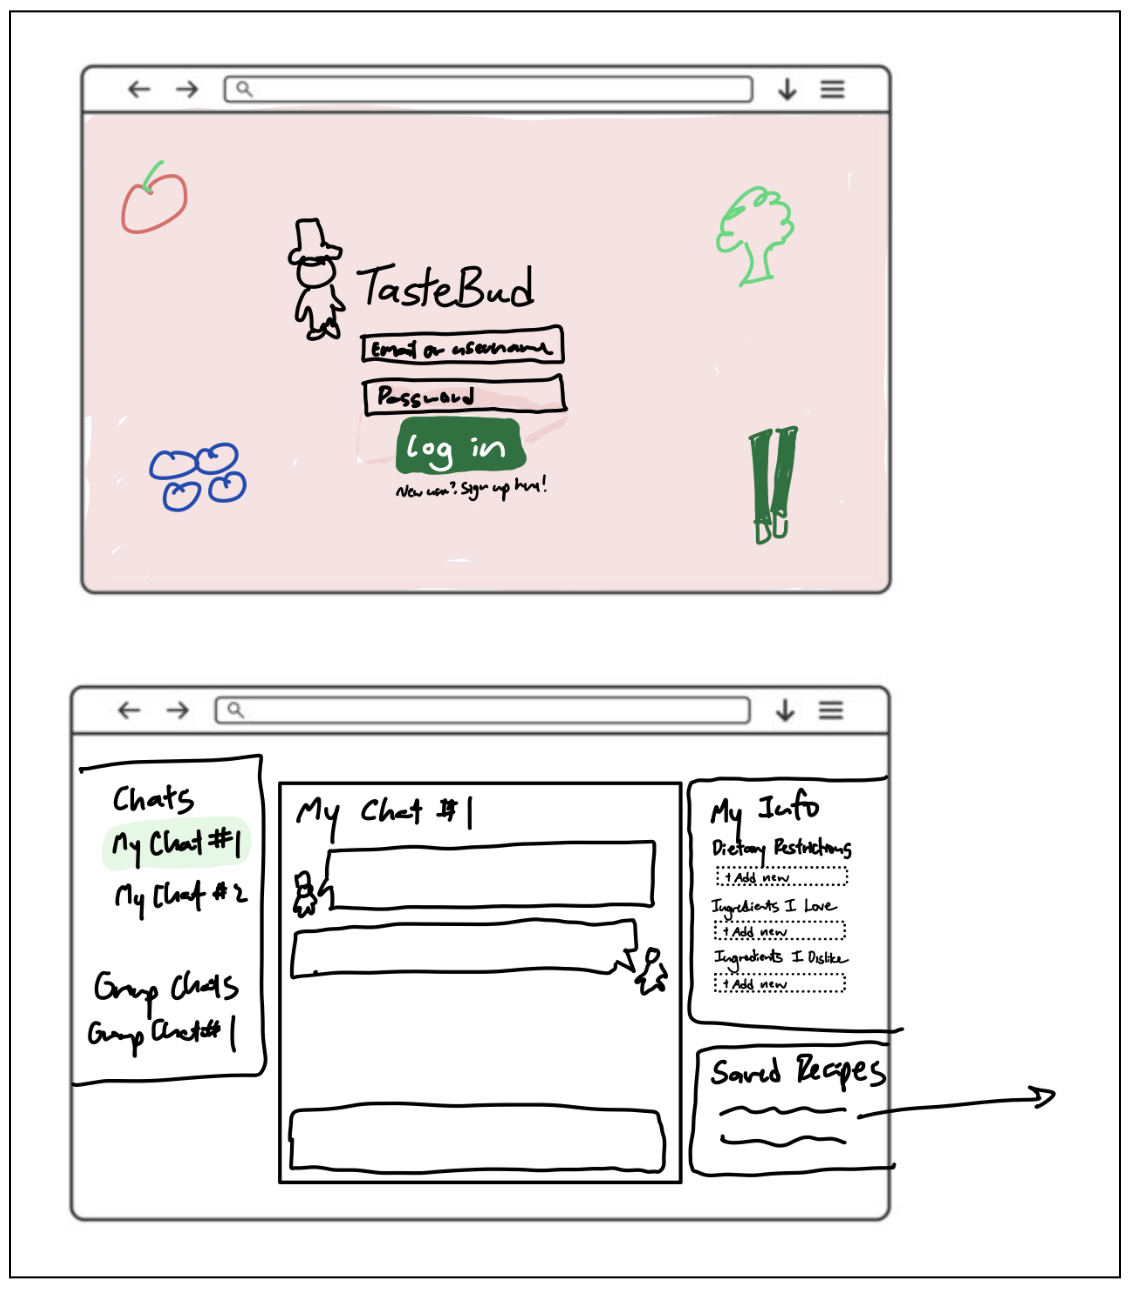 TasteBud
Email or username
Password
Log in
New user? Sign up here!
Chats
My Chat #1
My Chat #2
Group Chats
Group Chat #1
My Chat #1
My Info
Dietary Restrictions
+ Add new
Ingredients I Love
+ Add new
Ingredients I Dislike
+ Add new
Saved Recipes